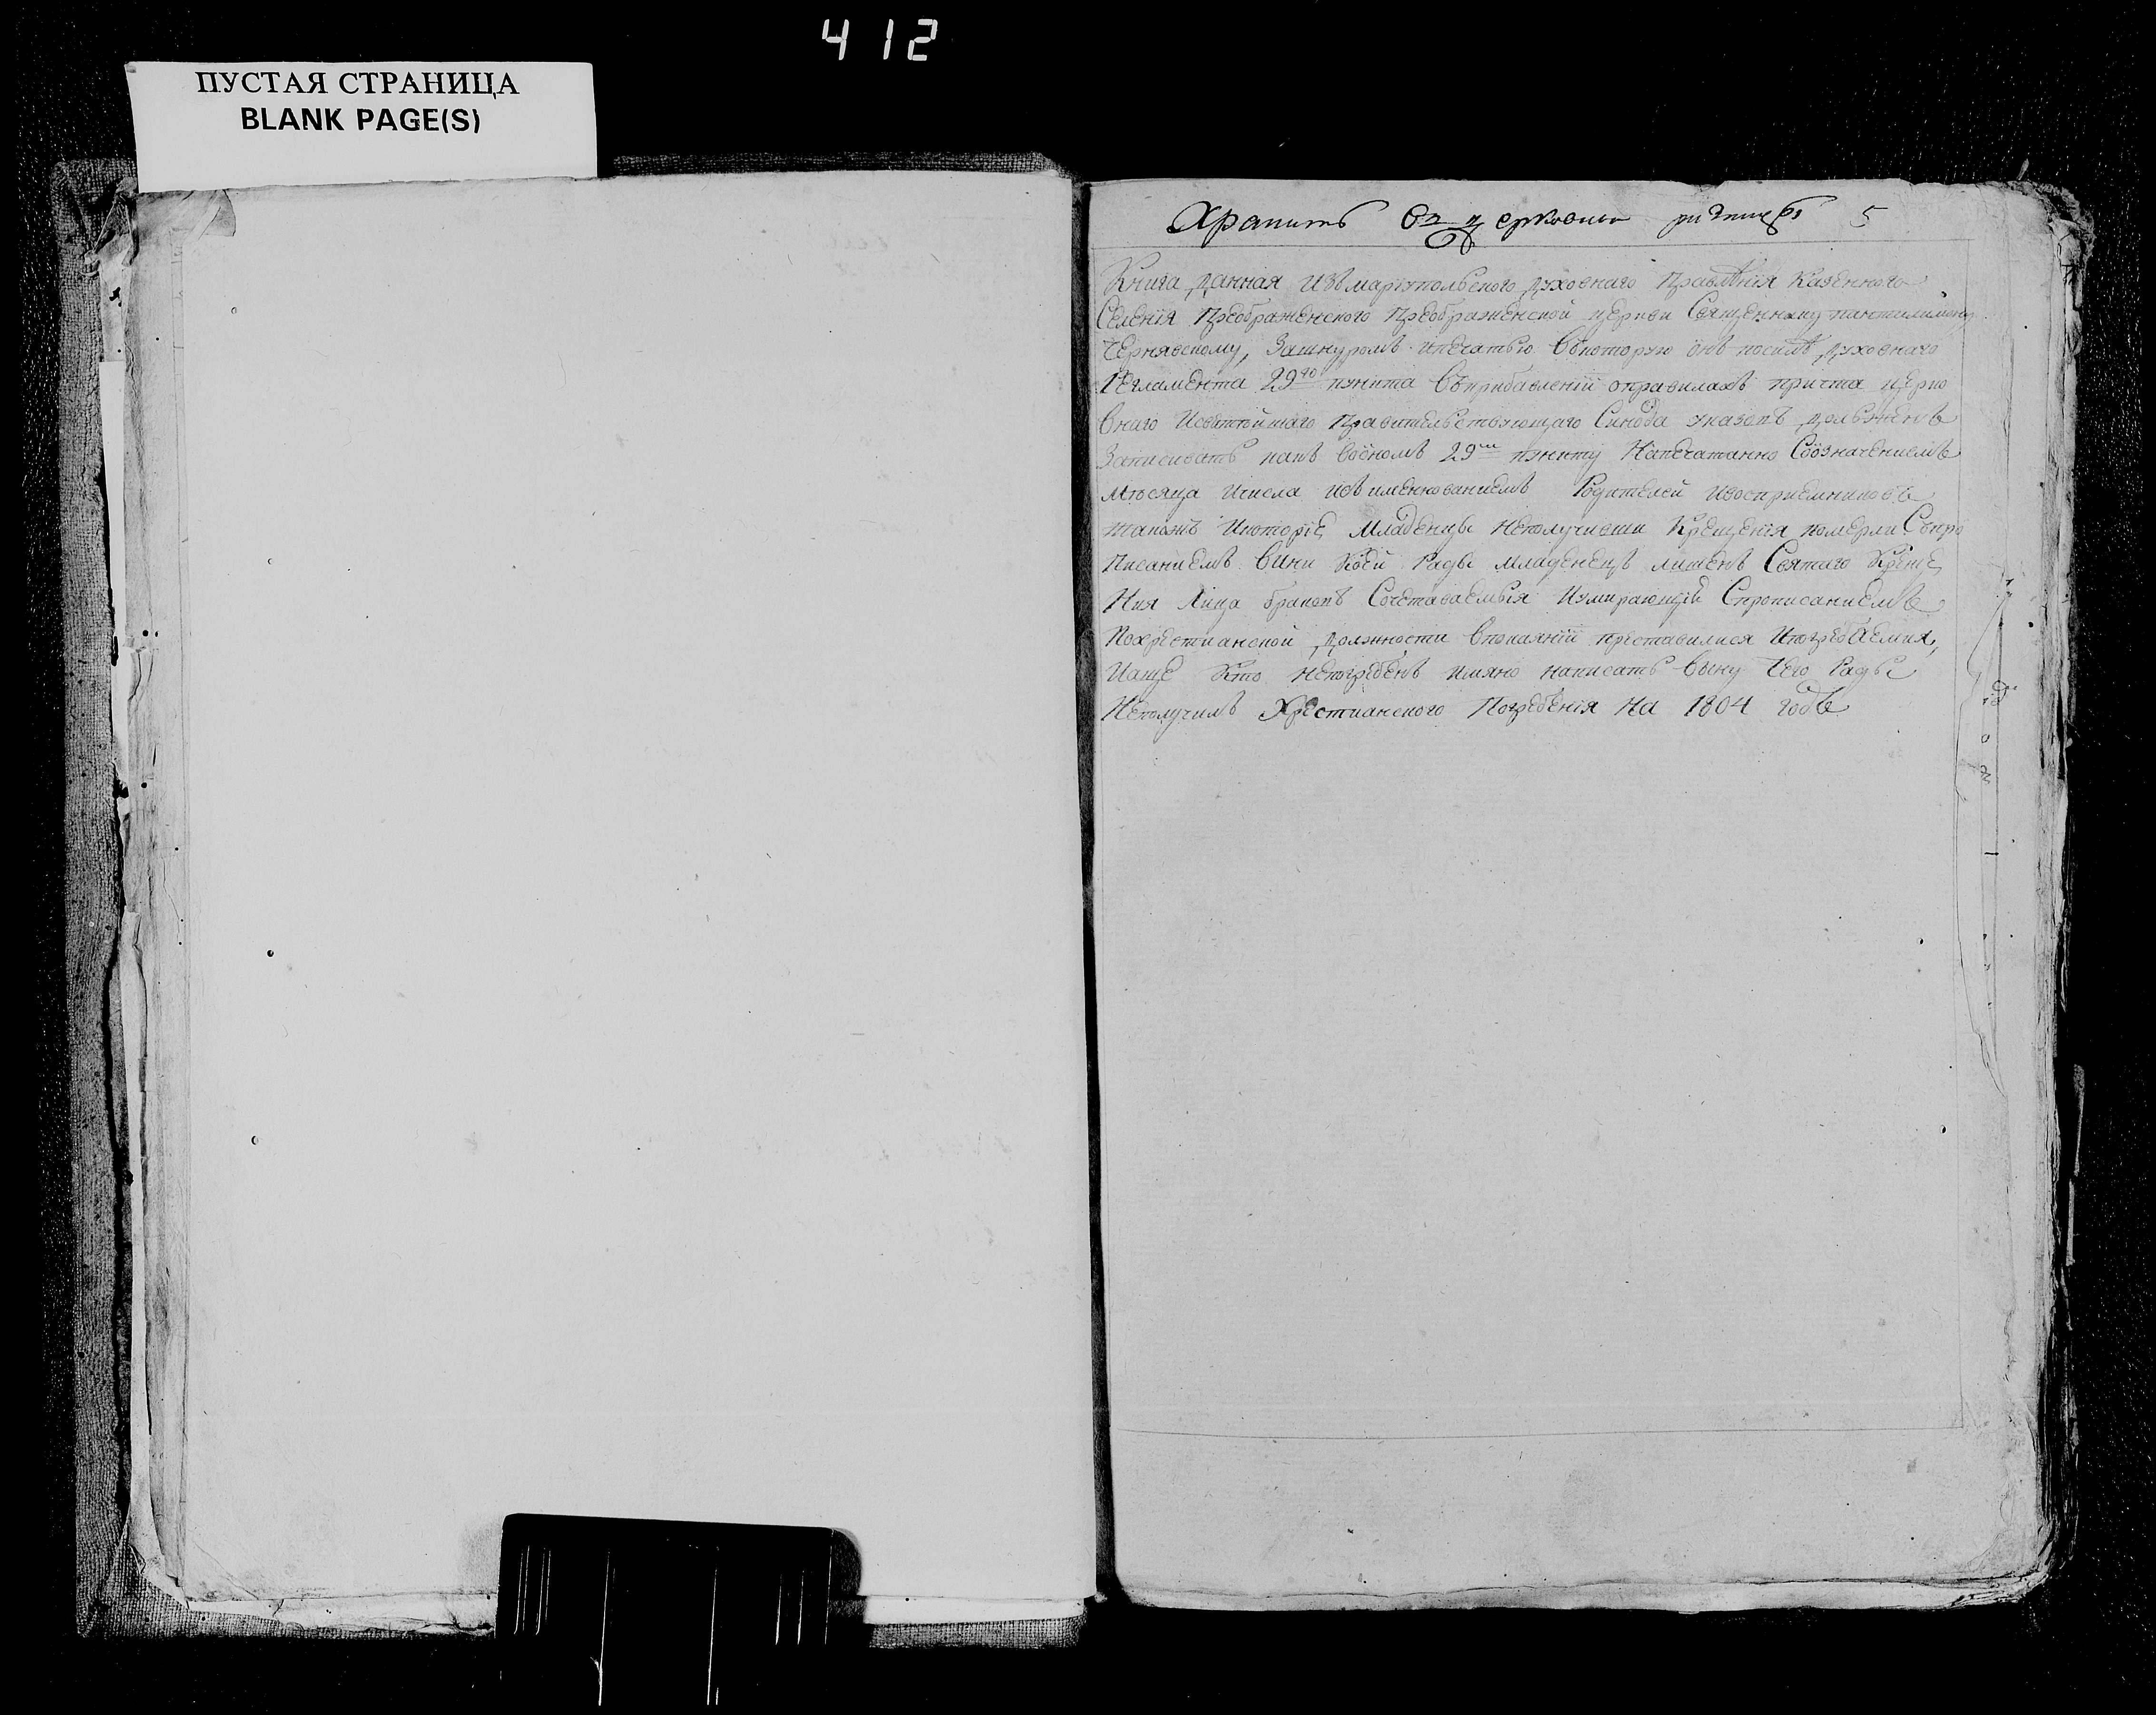 412
ПУСТАЯ СТРАНИЦА
BLANK PAGE(S)
Хранить въ церковной ризнице 5
Книга данная изъ мариупольского духовнаго правлѣнія казенного
Селенія Преображенского Преображенской церкви Священнику пантилимону
Чернявскому, Зашнуромъ ипечатью Вькоторую онъ посилѣ духовнаго
Регламента 29го пункта Въприбавленїи оправилахъ причта церко
внаго Исвятѣйшаго Правительствующаго Синода указовъ долъженъ
Записивать какъ Воѣномъ 29ом пункту Напечатанно Соозначениемъ
Мѣсяца Ичисла исъ именнованиемъ Родителей Ивосприемниковъ
такожъ Икоторіе Младенцы Неполучивши Крещенія померли Съпро
Писаниемъ Вини Коей Рады младенецъ лишенъ Святаго Креще
Ния Лица бракомъ Сочетаваемыя Иумирающїе Спрописаниемъ
Похрестианской должности Впокаянїи преставилися Ипогребаемия,
Иаще Кто непогребенъ имяно написать Вину Чего Рады
Неполучилъ Хрестианского Погребенія На 1804 годъ